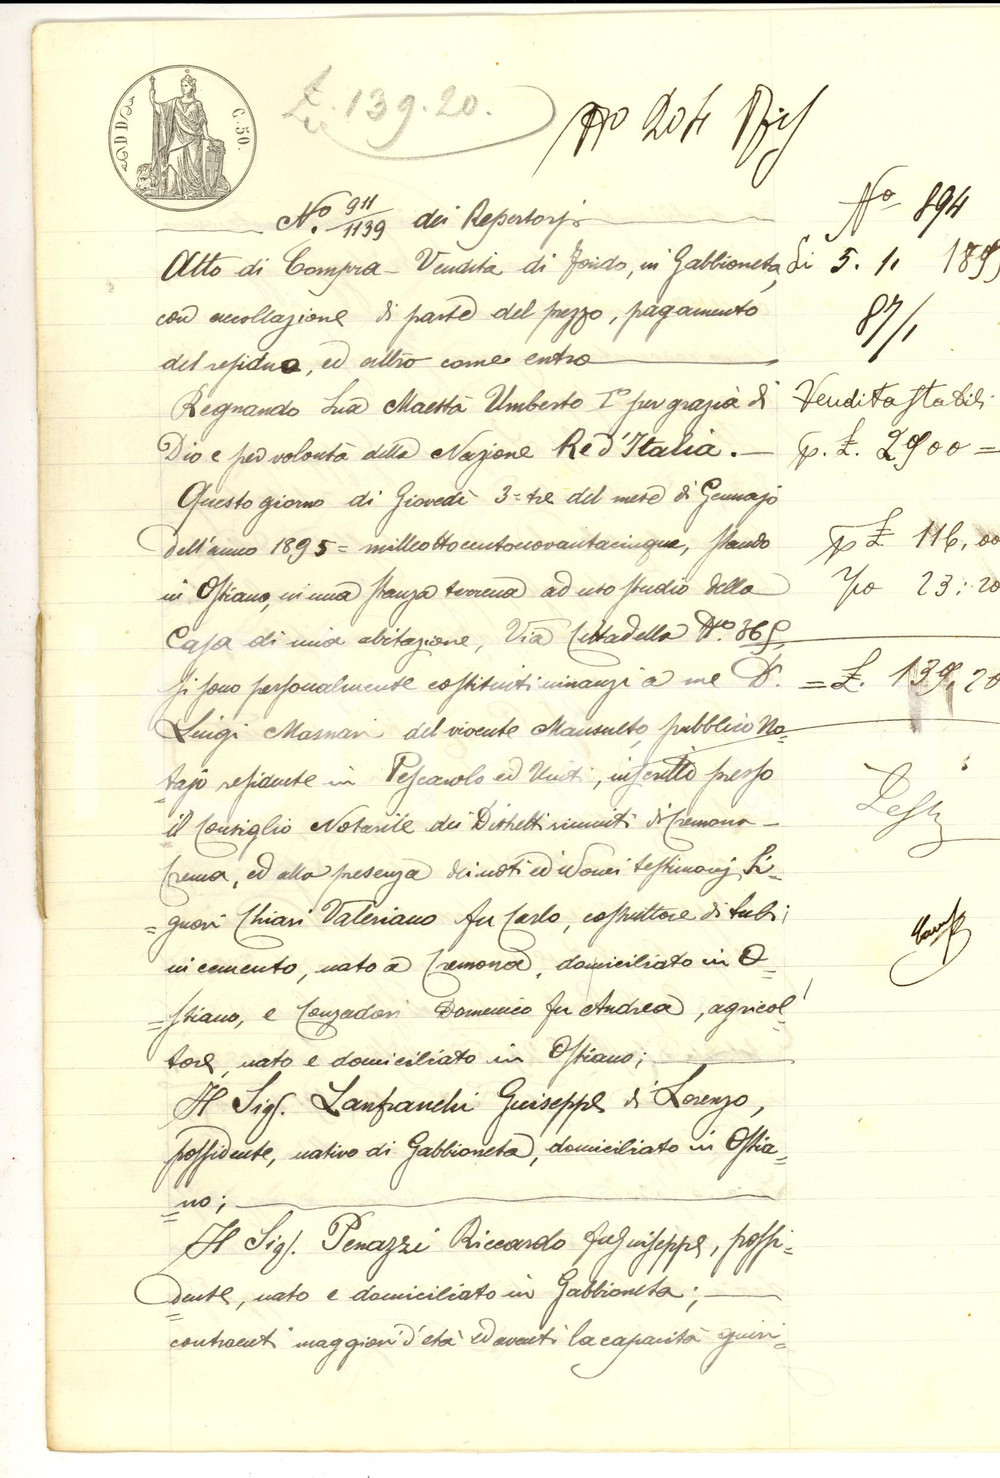 £. 139.20.
N° 204
C. 50.
N.° 911/1139 dei Repertorj
Atto di Compra-Vendita di fondo, in Gabbioneta,
con accollazione di parte del prezzo, pagamento
del residuo, ed altro come entro
Regnando Sua Maestà Umberto I° per grazia di
Dio e per volontà della Nazione Re d'Italia. —
Questo giorno di Giovedì 3= tre del mese di Gennajo
dell'anno 1895= milleottocentonovantacinque, stando
in Ostiano, in una stanza terrena ad uso studio della
Casa di mia abitazione, Via Cittadella N.° 365,
si sono personalmente costituiti innanzi a me D.
Luigi Masnari del vivente Mansueto, pubblico No=
=tajo residente in Pescarolo ed Uniti, inscritto presso
il Consiglio Notarile dei Distretti riuniti di Cremona-
Crema, ed alla presenza dei noti ed idonei testimonj Si=
=gnori Chiari Valeriano fu Carlo, costruttore di tubi
in cemento, nato a Cremona, domiciliato in O=
=stiano, e Conzadori Domenico fu Andrea, agricol=
tore, nato e domiciliato in Ostiano;
Il Sig. Lanfranchi Giuseppe di Lorenzo,
possidente, nativo di Gabbioneta, domiciliato in Ostia=
=no;
Il Sig. Penazzi Riccardo fu Giuseppe, possi=
=dente, nato e domiciliato in Gabbioneta;
contraenti maggiori d'età ed aventi la capacità giuri=
N° 894
Li 5. 1. 1895
87/1
Vendita stabili
p. £. 2900 =
p £ 116,00
23:20
= £. 139,20